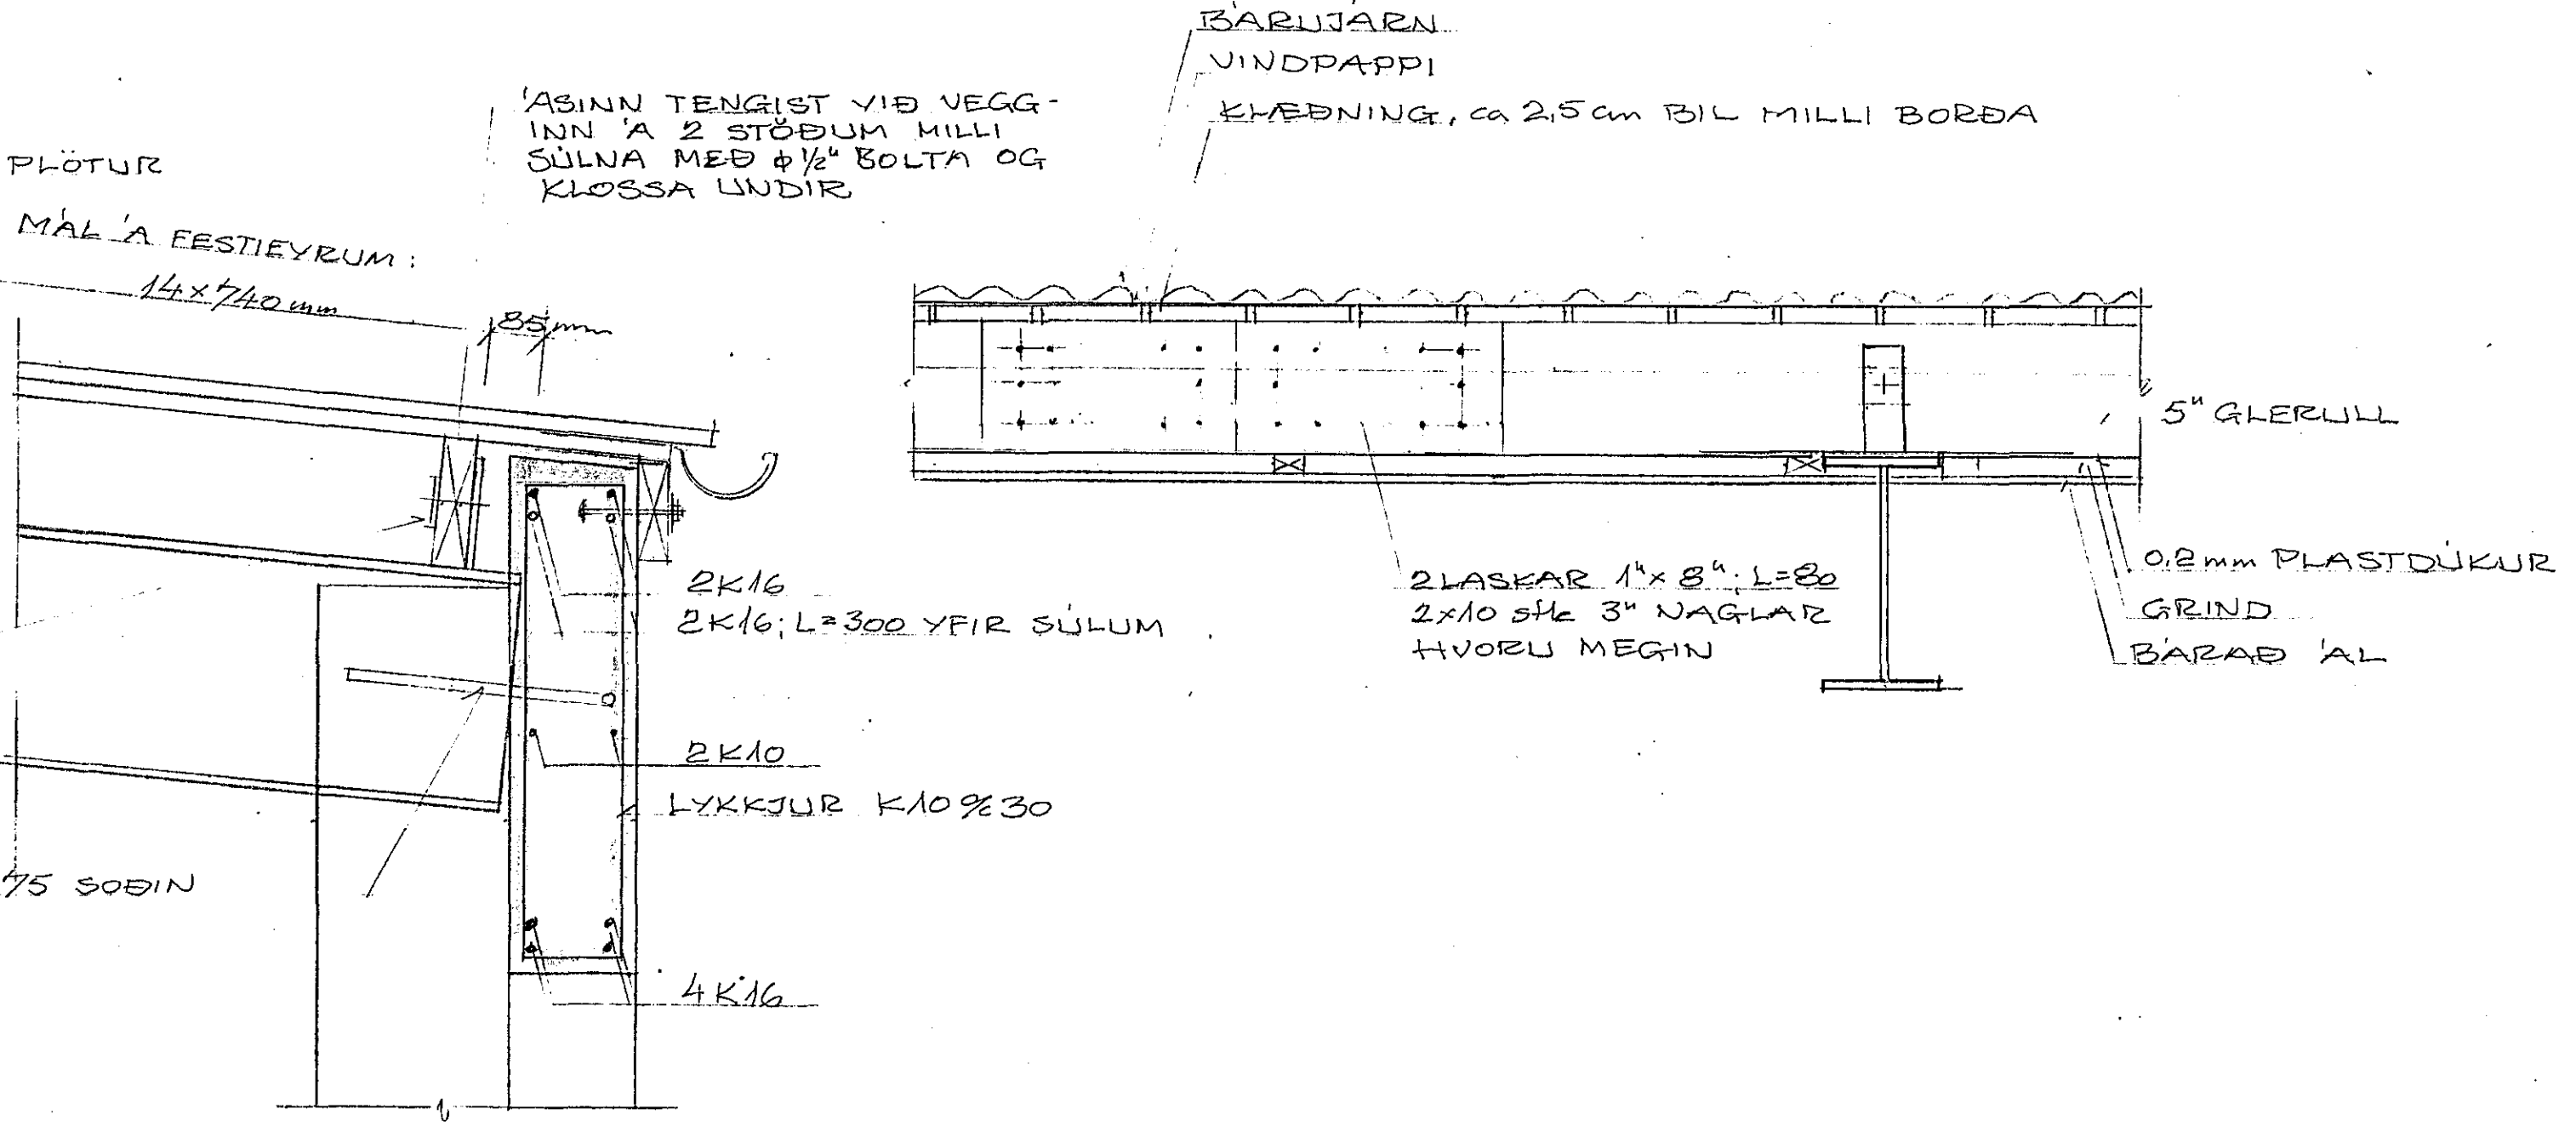 BÁRUJÁRN
VINDPAPPI
KLÆÐNING, ca 2,5 cm BIL MILLI BORÐA
ÁSINN TENGIST VIÐ VEGG-
INN Á 2 STÖÐUM MILLI
SÚLNA MEÐ ϕ 1/2" BOLTA OG
KLOSSA UNDIR
PLÖTUR
MÁL Á FESTIEYRUM:
14x740 mm
85 mm
5" GLERULL
0,2 mm PLASTDÚKUR
GRIND
BÁRAÐ ÁL
2 LASKAR 1"x 8"; L=80
2x10 stk 3" NAGLAR
HVORU MEGIN
2K16
2K16; L=300 YFIR SÚLUM
2K10
LYKKJUR K10 % 30
75 SOÐIN
4K16